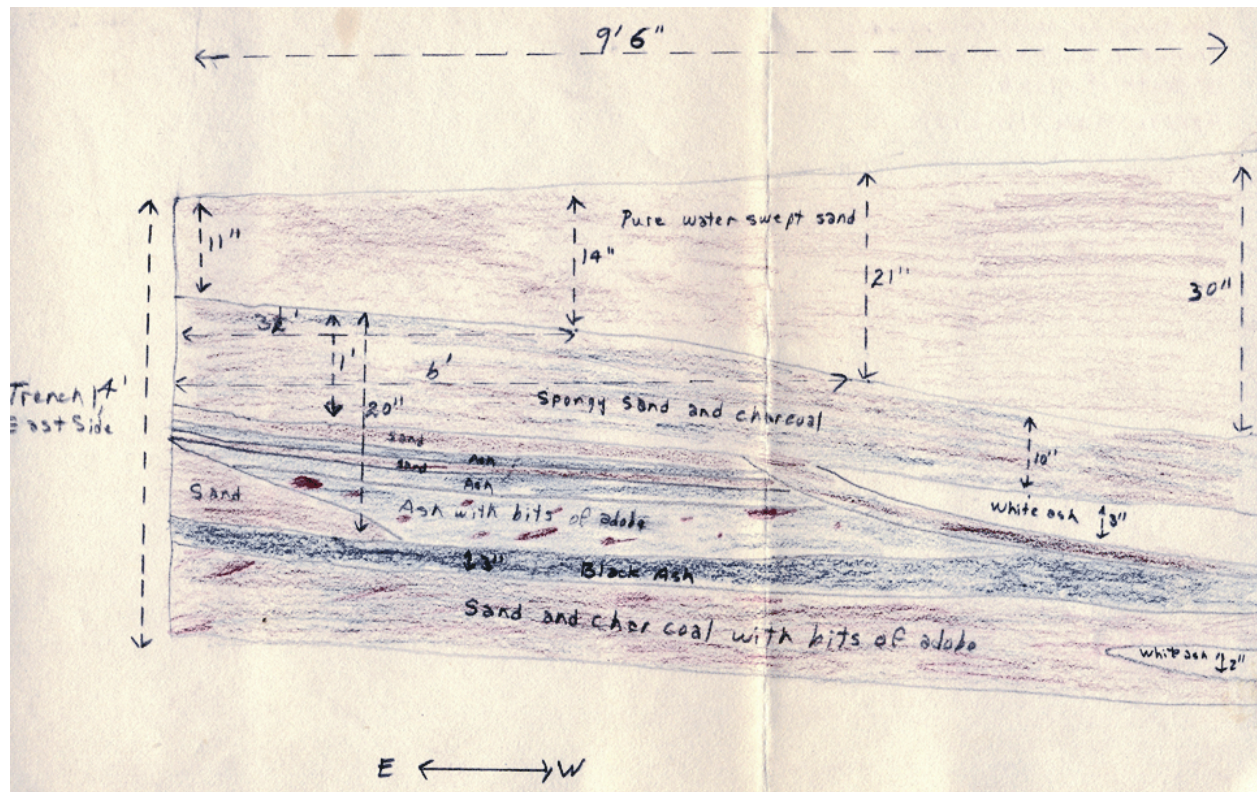 9' 6"
Pure water swept sand
11"
14"
21"
30"
3½'
1'
6'
20"
Trench 4'
East Side
Spongy sand and charcoal
10"
sand
Ash
sand
Ash
Sand
Ash with bits of adobe
White ash 3"
3"
Black Ash
Sand and char coal with bits of adobe
White ash 2"
E W